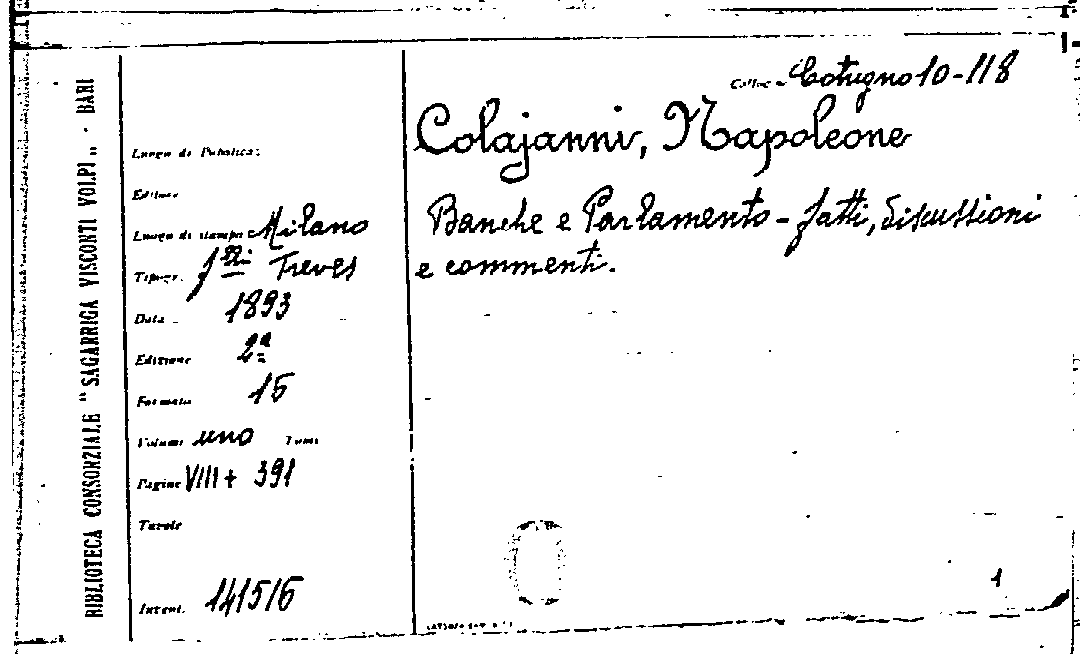 BIBLIOTECA CONSORZIALE "SAGARRIGA VISCONTI VOLPI" - BARI
Colloc. Cotugno 10-118
Colajanni, Napoleone
Banche e Parlamento - fatti, discussioni
e commenti.
Luogo di Pubblicaz:
Editore
Luogo di stampa: Milano
Tipogr. f.lli Treves
Data 1893
Edizione 2ª
Formato 16
Volumi uno Tomi
Pagine VIII + 391
Tavole
Invent. 141516
1